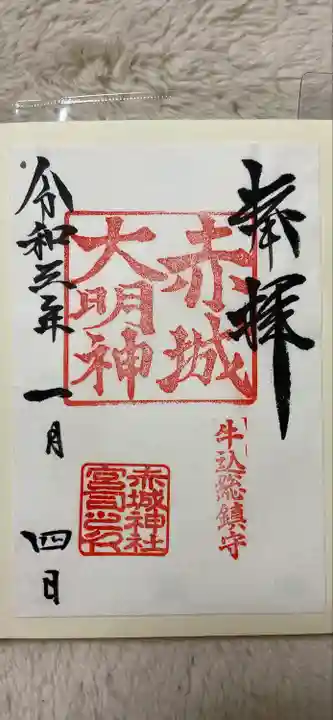 奉拝
赤城
大明神
牛込総鎮守
赤城神社
宮司之印
令和三年 一月 四日